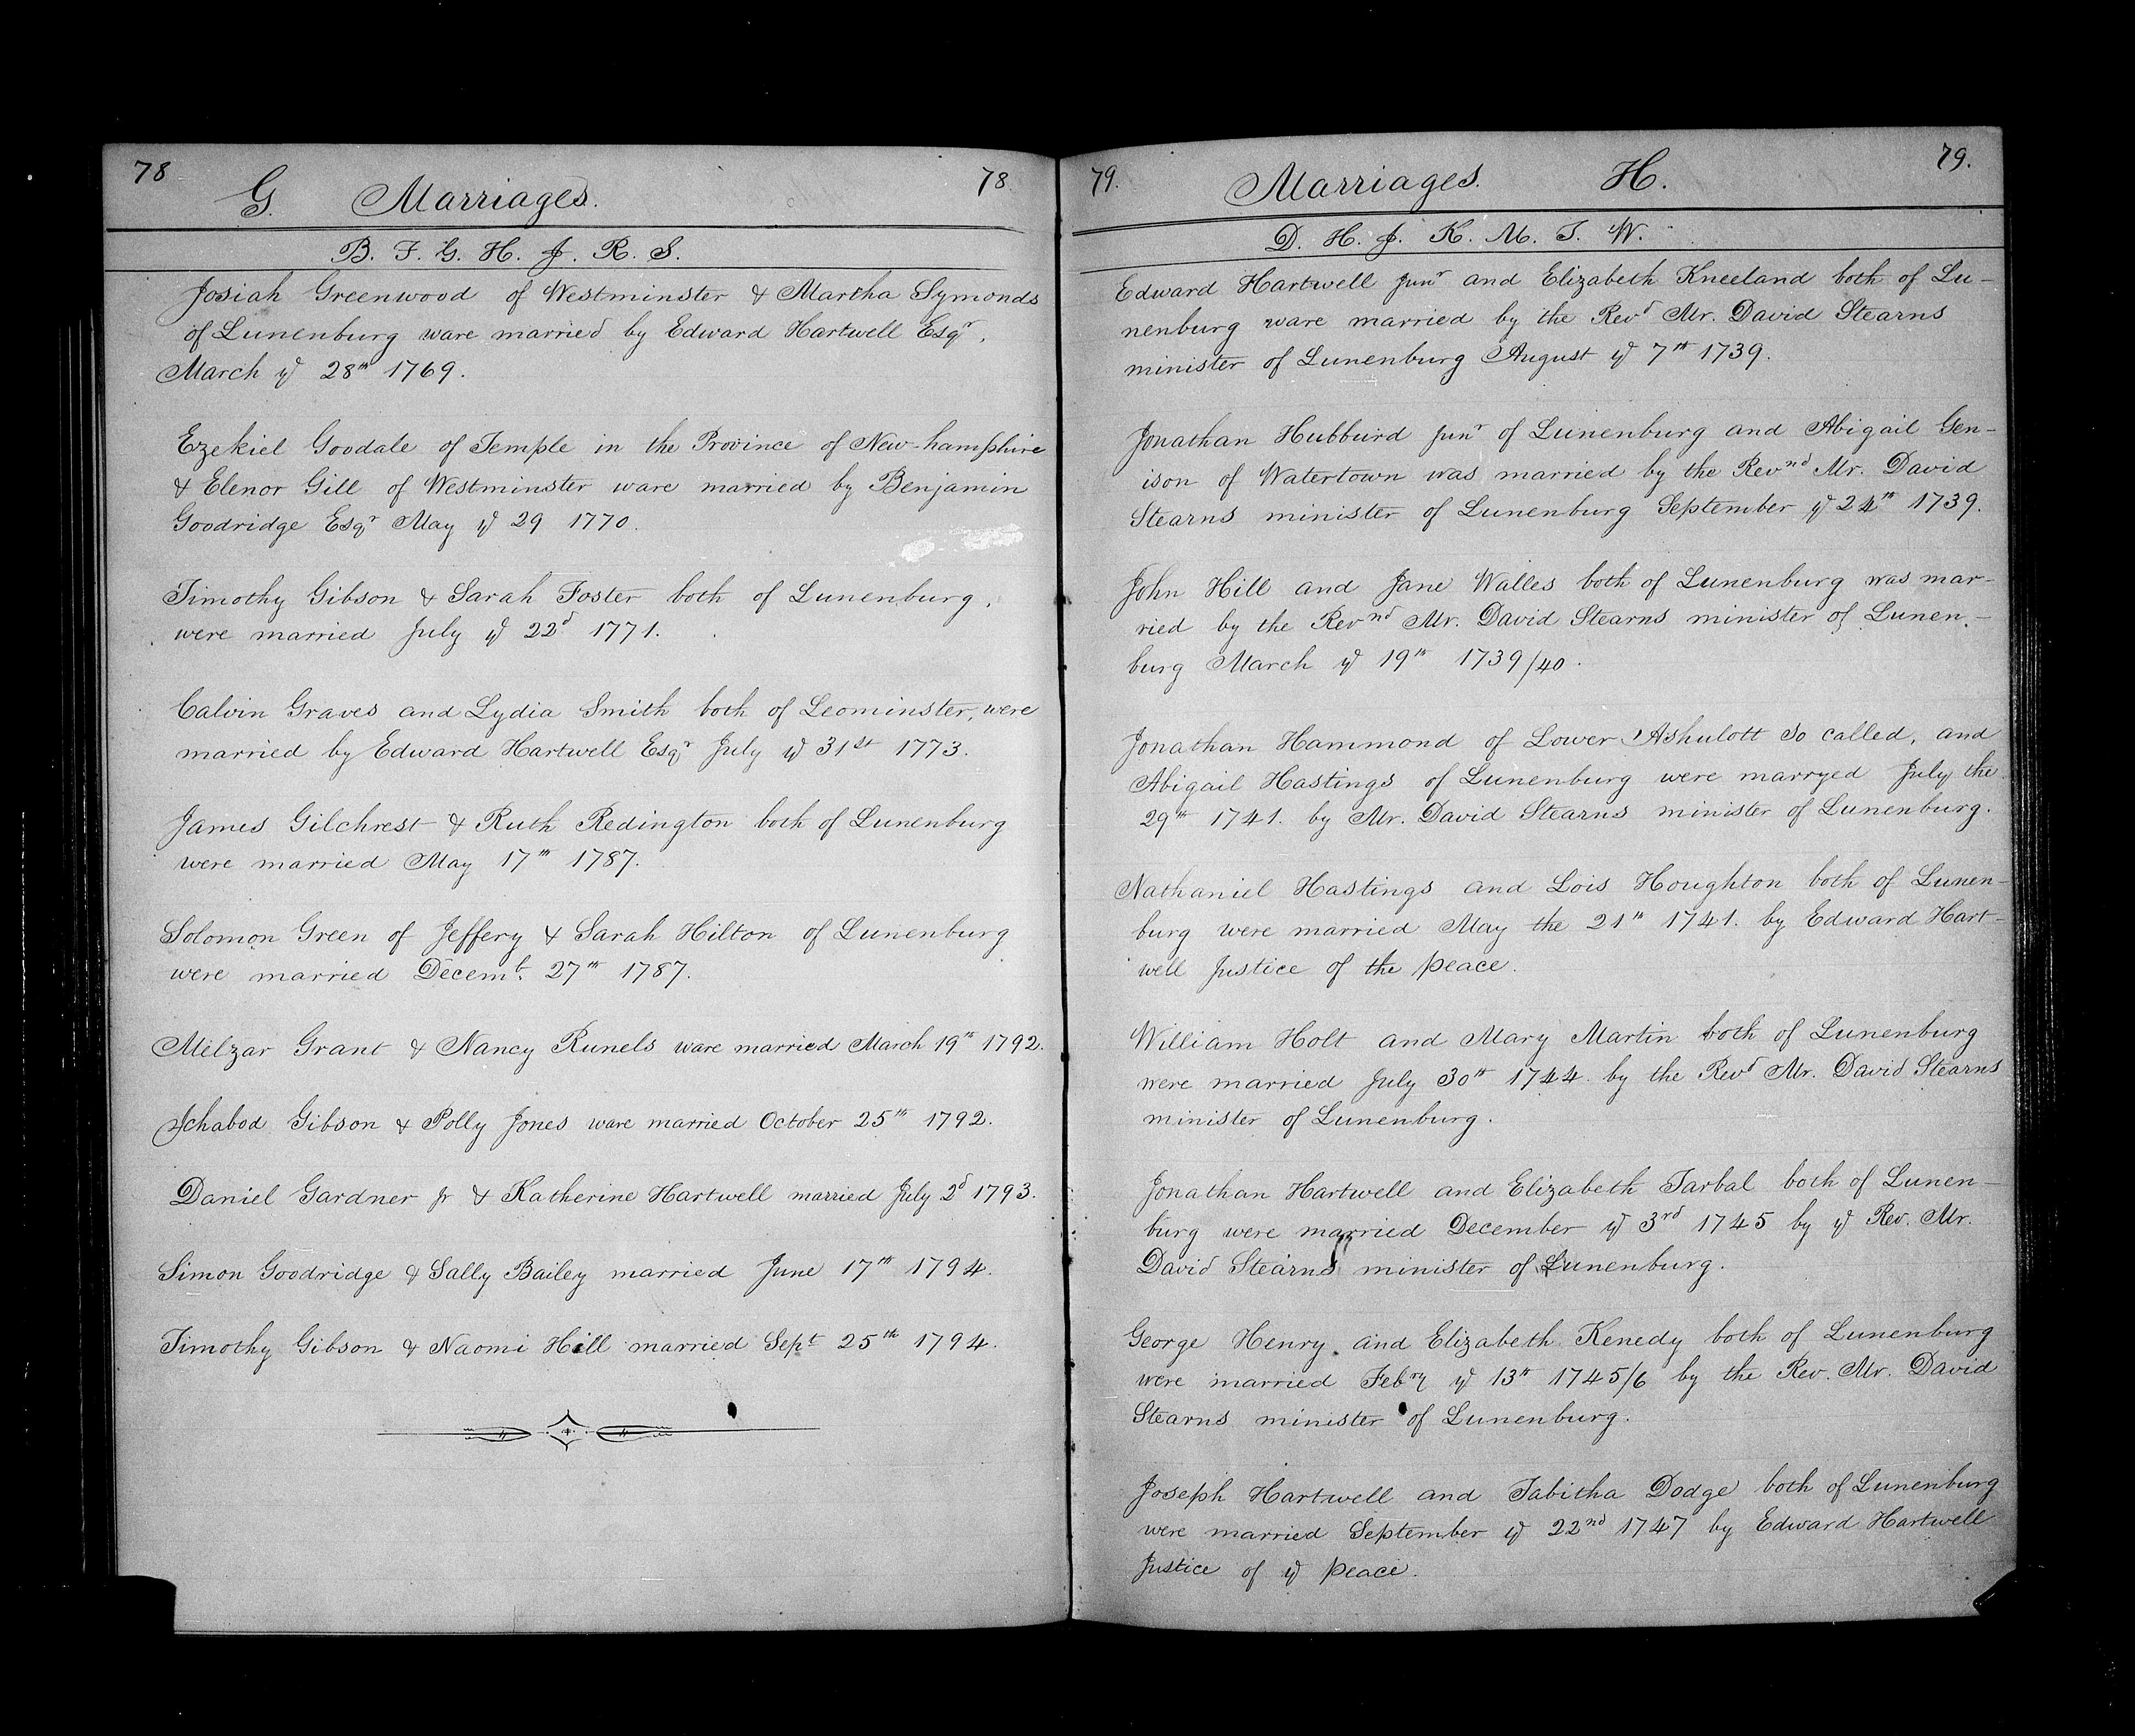 78
G. Marriages.
78.
B. F. G. H. J. R. S.
Josiah Greenwood of Westminster & Martha Symonds
of Lunenburg ware married by Edward Hartwell Esqr.
March ye 28th 1769.
Ezekiel Goodale of Temple in the Province of New-hampshire
& Elenor Gill of Westminster ware married by Benjamin
Goodridge Esqr May ye 29 1770.
Timothy Gibson & Sarah Foster both of Lunenburg,
were married July ye 22d 1771.
Calvin Graves and Lydia Smith both of Leominster, were
married by Edward Hartwell Esqr July ye 31st 1773.
James Gilchrest & Ruth Redington both of Lunenburg
were married May 17th 1787.
Solomon Green of Jeffery & Sarah Hilton of Lunenburg
were married Decembr. 27th 1787.
Melzar Grant & Nancy Runels ware married March 19th 1792.
Ichabod Gibson & Polly Jones ware married October 25th 1792.
Daniel Gardner jr & Katherine Hartwell married July 2d 1793.
Simon Goodridge & Sally Bailey married June 17th 1794.
Timothy Gibson & Naomi Hill married Sept 25th 1794.
79.
Marriages. H.
79.
D. H. J. K. M. T. W.
Edward Hartwell junr and Elizabeth Kneeland both of Lu-
nenburg ware married by the Revd Mr. David Stearns
minister of Lunenburg August ye 7th 1739.
Jonathan Hubburd junr of Lunenburg and Abigail Gen-
ison of Watertown was married by the Revnd Mr. David
Stearns minister of Lunenburg September ye 24th 1739.
John Hill and Jane Walles both of Lunenburg was mar-
ried by the Revnd Mr. David Stearns minister of Lunen-
burg March ye 19th 1739/40.
Jonathan Hammond of Lower Ashulott so called, and
Abigail Hastings of Lunenburg were marryed July the
29th 1741. by Mr. David Stearns minister of Lunenburg.
Nathaniel Hastings and Lois Houghton both of Lunen-
burg were married May the 21th 1741. by Edward Hart-
well Justice of the peace.
William Holt and Mary Martin both of Lunenburg
were married July 30th 1744 by the Revd Mr. David Stearns
minister of Lunenburg.
Jonathan Hartwell and Elizabeth Tarbal both of Lunen-
burg were married December ye 3rd 1745 by ye Rev. Mr.
David Stearns minister of Lunenburg.
George Henry and Elizabeth Kenedy both of Lunenburg
were married Febry ye 13th 1745/6 by the Rev. Mr. David
Stearns minister of Lunenburg.
Joseph Hartwell and Tabitha Dodge both of Lunenburg
were married September ye 22nd 1747 by Edward Hartwell
Justice of ye peace.